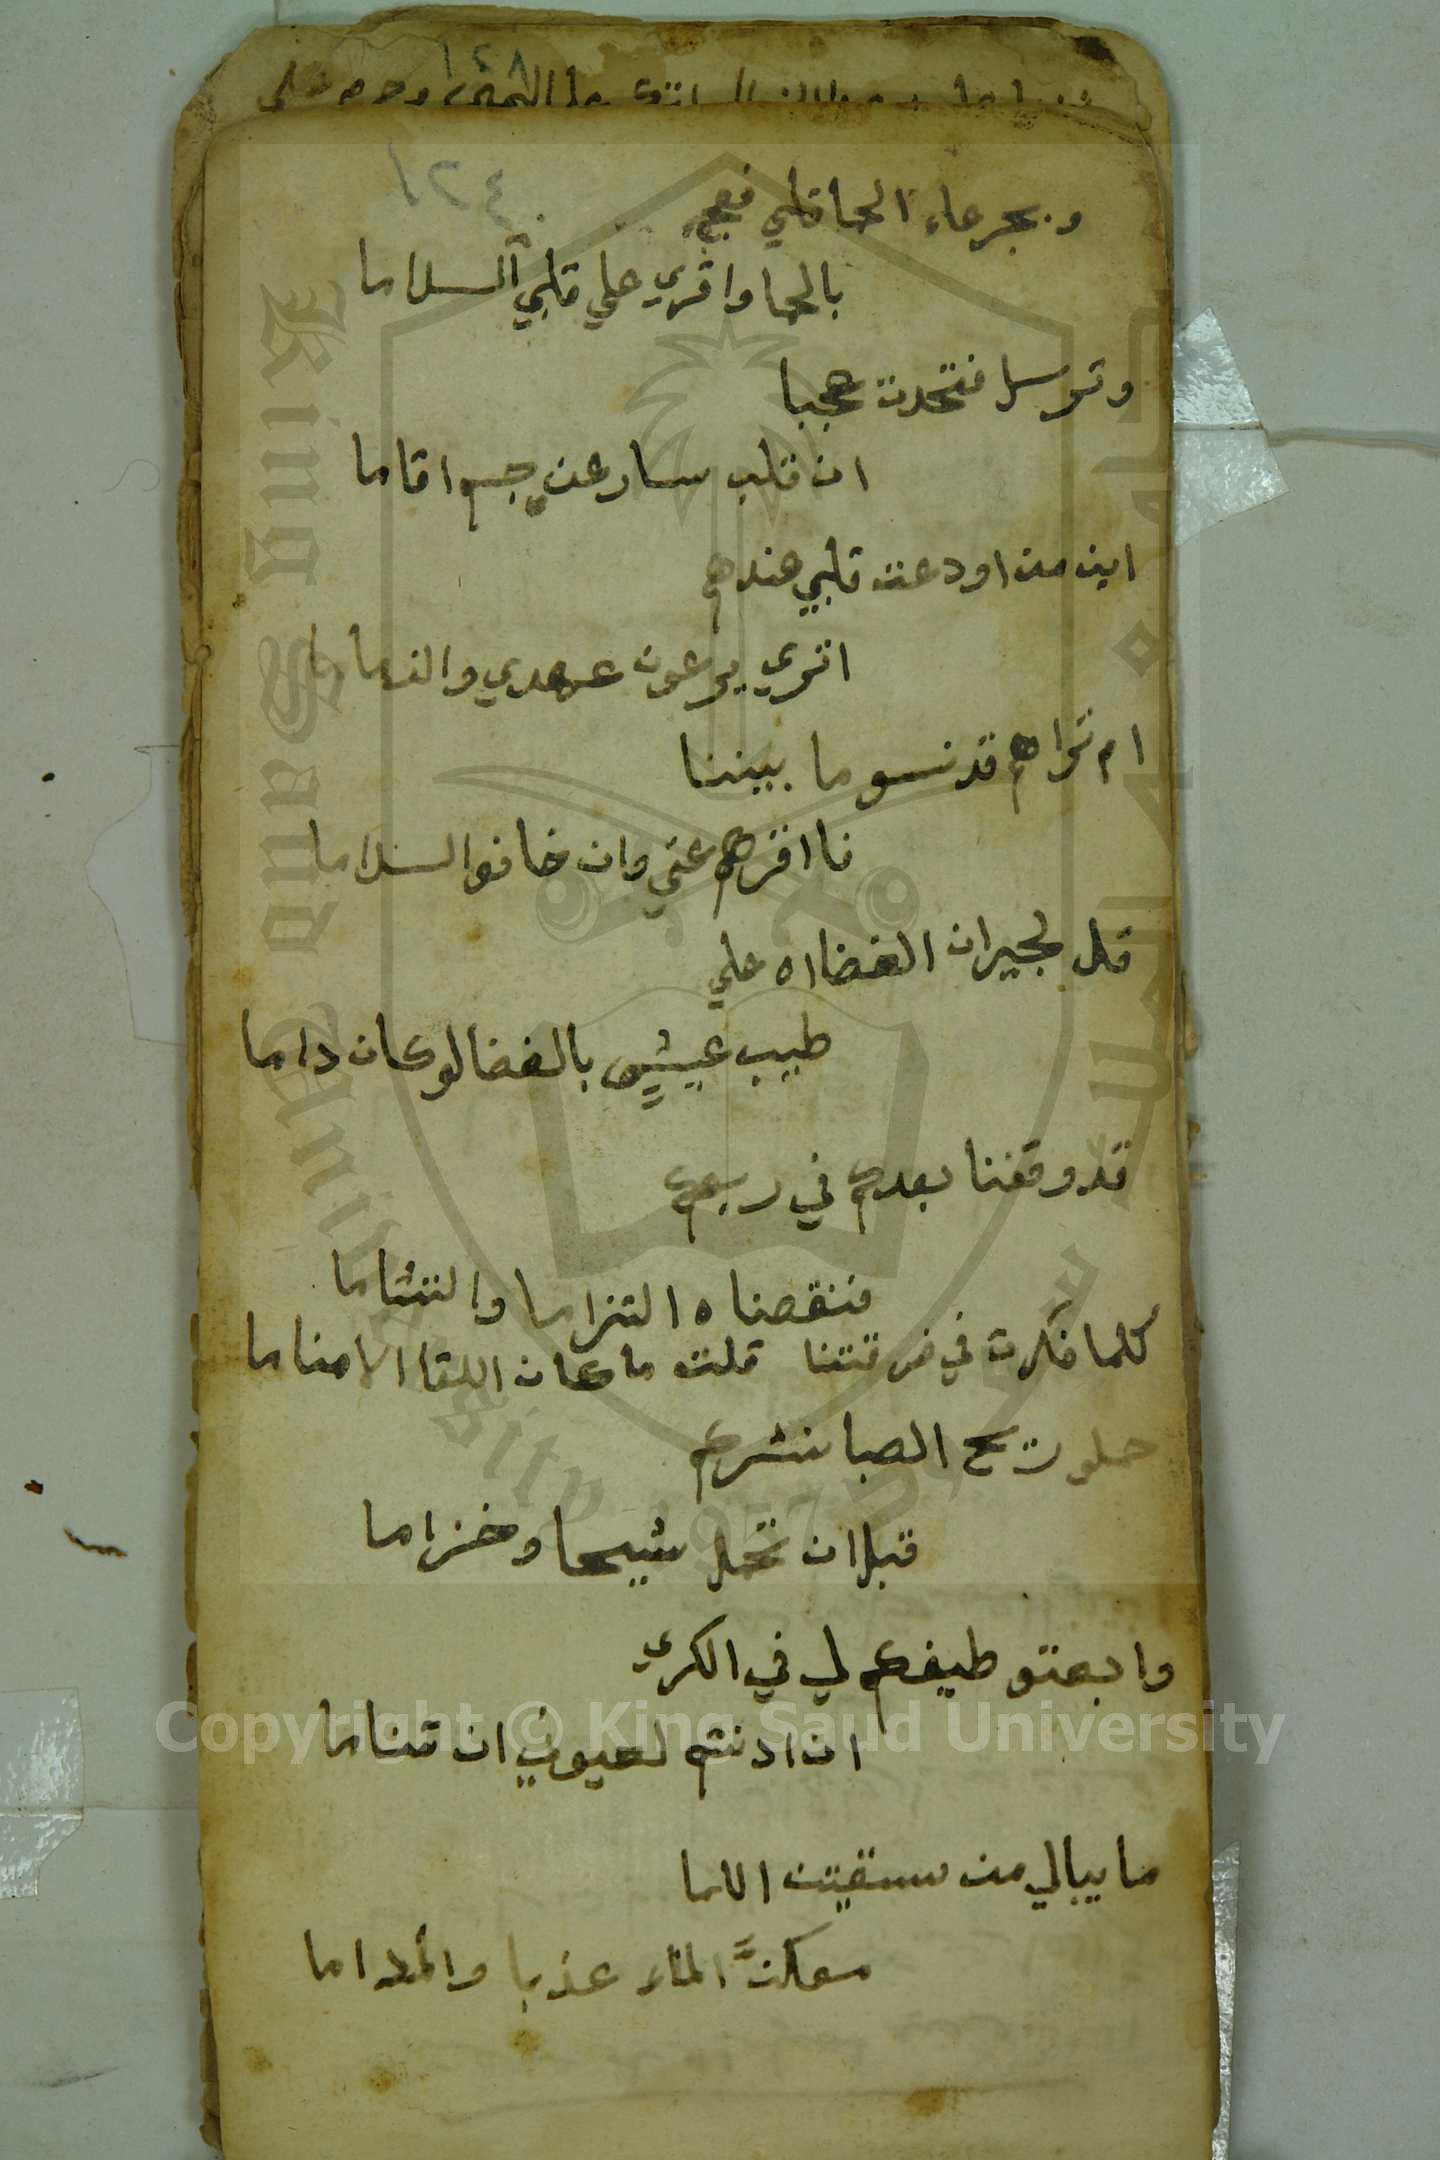 ١٢٨
١٢٤
وبجرعاء الحما قلبي فعجي
بالحما واقري علي قلبي السلاما
وترسل فتحدت عجبا
ان قلب سار عن جسم اقاما
اين من اودعت قلبي عندهم
اتري يرعون عهدي والذماما
ام تراهم قد نسو ما بيننا
فااقرهم عني وان خافوا السلاما
قل لجيران الغضا اه علي
طيب عيشي بالغضا لو كان داما
قد وقفنا بعدكم في ربعكم
فنقصناه التزاما والتثاما
كلما فكرت في فرقتنا قلت ما كان اللقا الا مناما
حملو ريح الصبا نشركم
قبل ان تحمل شيحا وخزاما
وابعتو طيفكم لي في الكري
ان ادنتم لعيوني ان تناما
ما يبالي من سقيتن اللما
معكن الماء عذبا والمداما
King Saud University
1957
Copyright © King Saud University